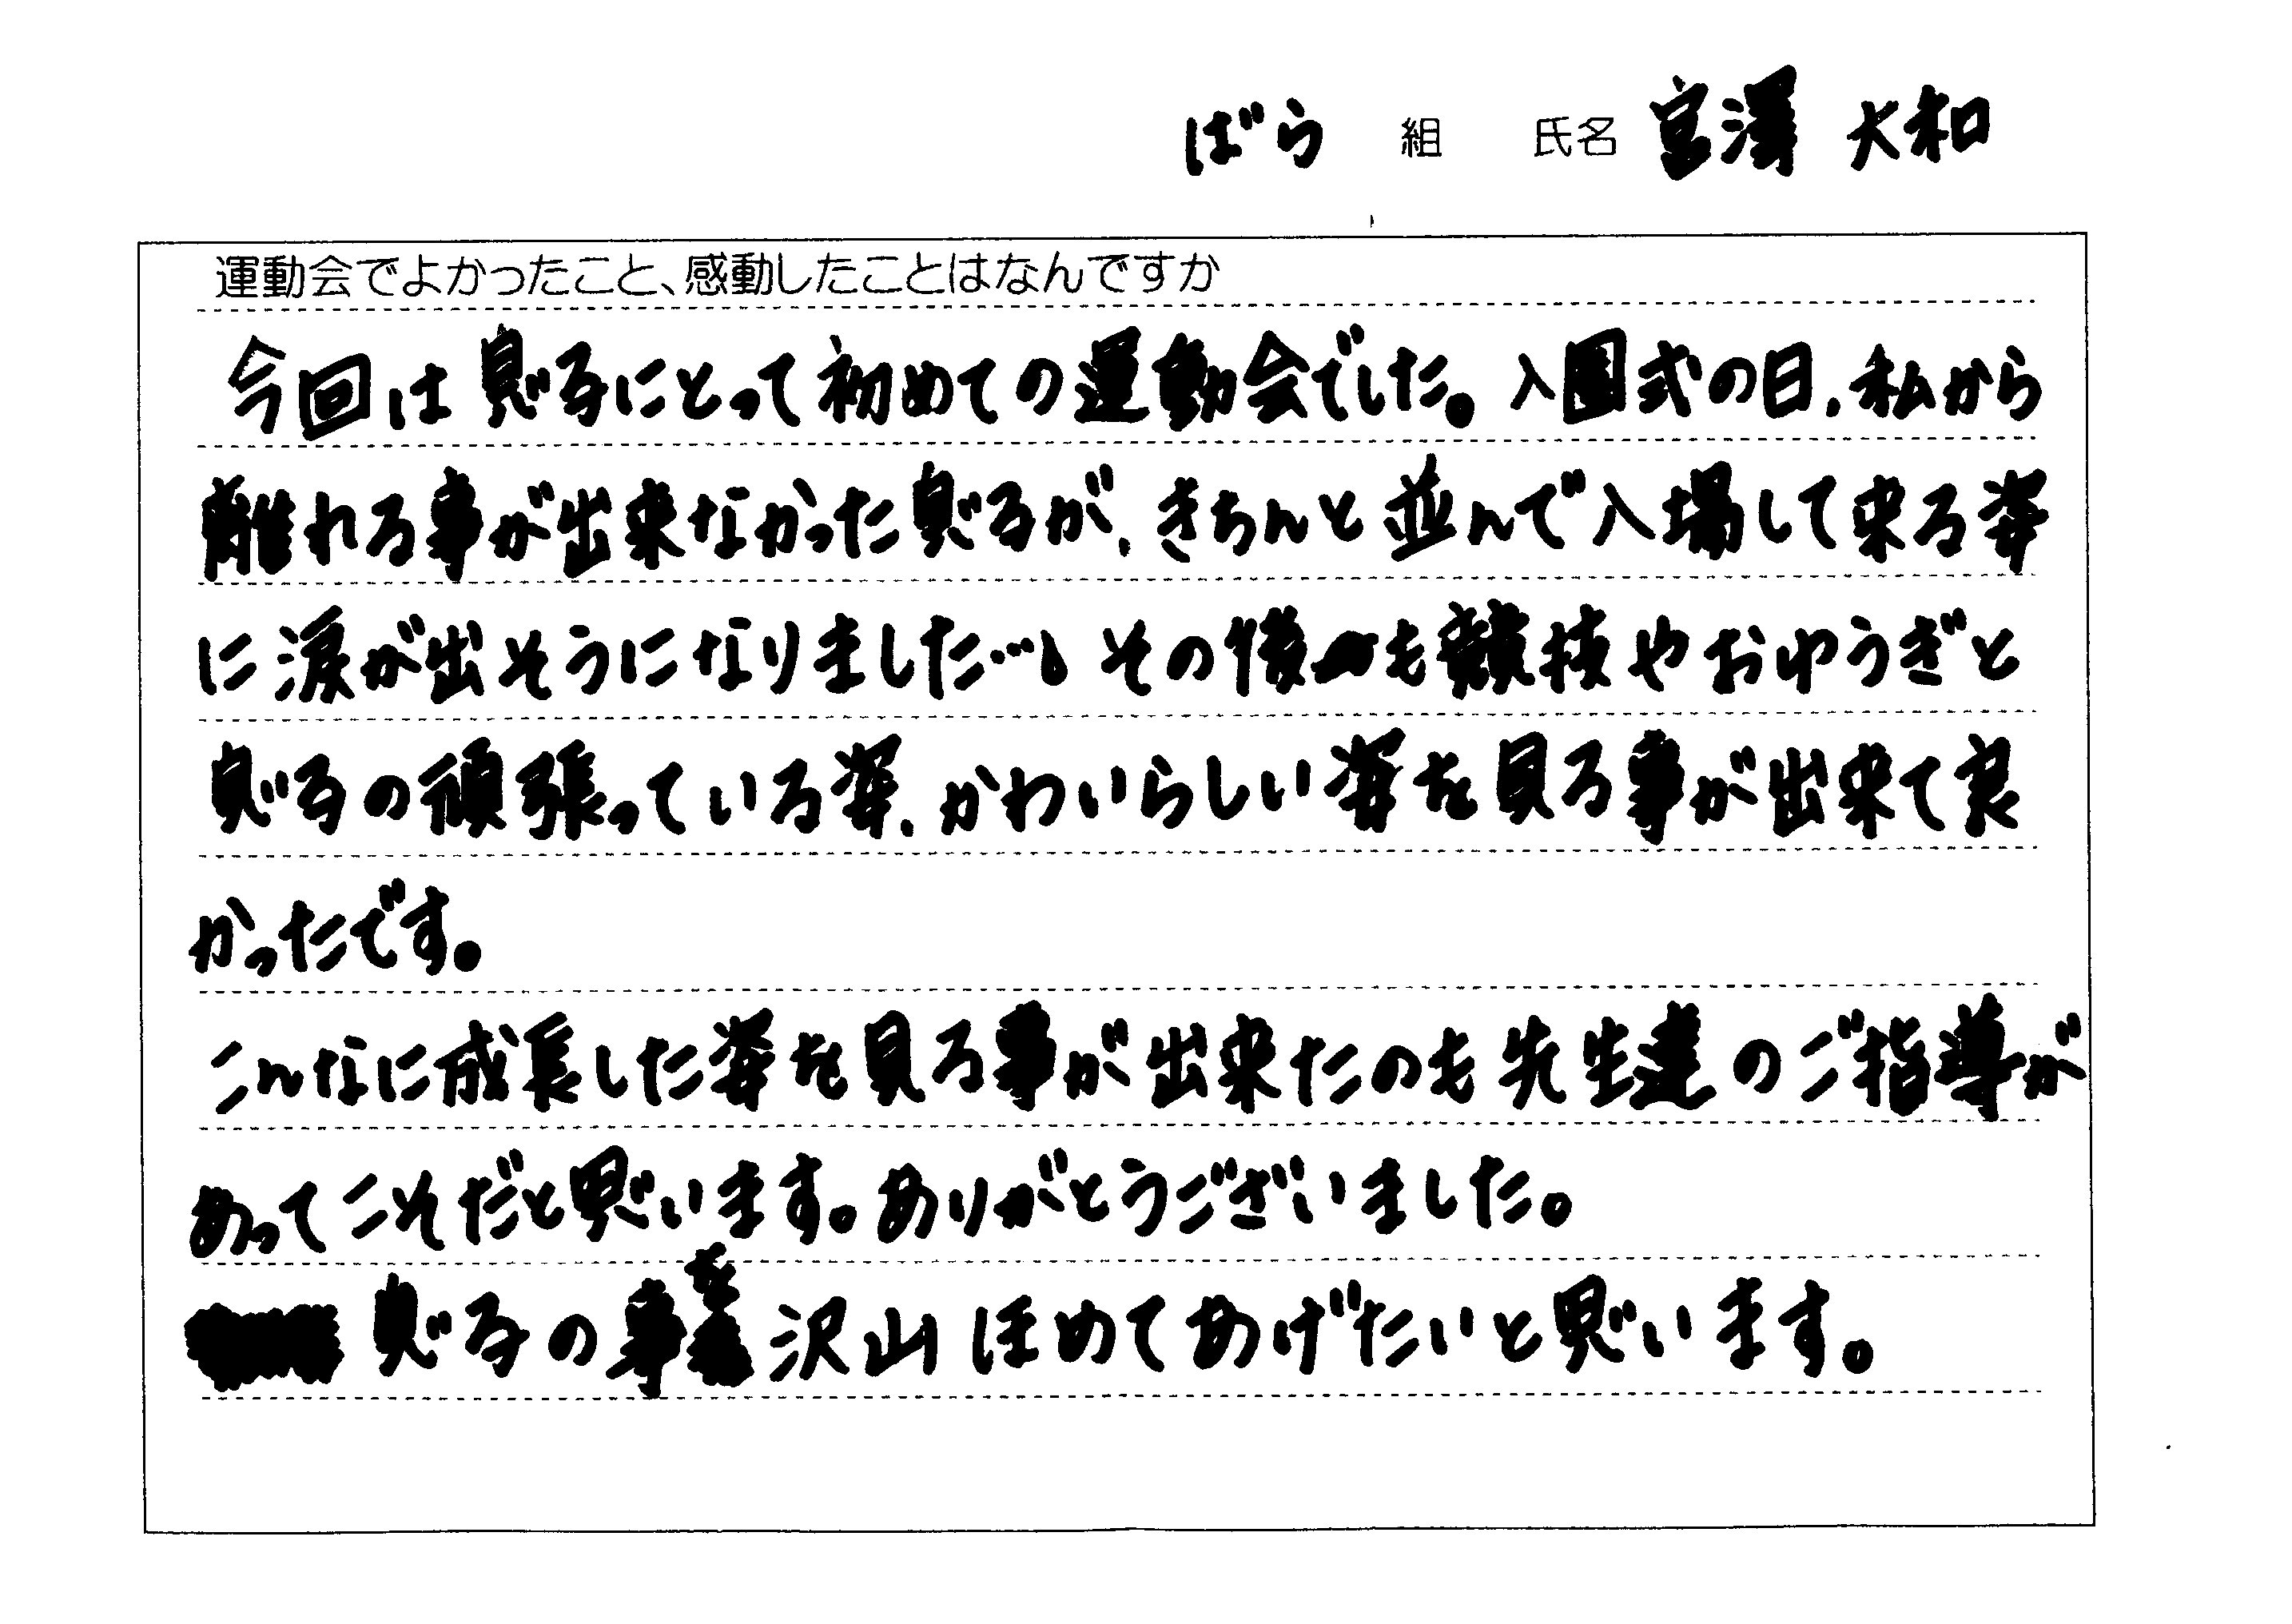 ばら 組 氏名 宮澤 大和
運動会でよかったこと、感動したことはなんですか
今回は息子にとって初めての運動会でした。入園式の日、私から
離れる事が出来なかった息子が、きちんと並んで入場して来る姿
に涙が出そうになりました…。その後も競技やおゆうぎと
息子の頑張っている姿、かわいらしい姿を見る事が出来て良
かったです。
こんなに成長した姿を見る事が出来たのも先生達のご指導が
あってこそだと思います。ありがとうございました。
息子の事を沢山ほめてあげたいと思います。